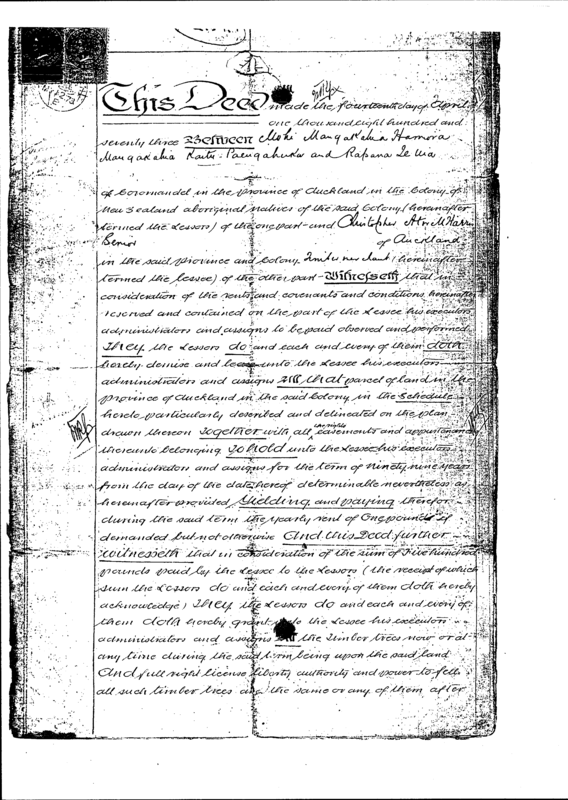 This Deed made the fourteenth day of April
one thousand eight hundred and
seventy three Between Mohi Mangakahia Hamora
Mangakahia and Rapana
of Coromandel in the Province of Auckland in the Colony of
New Zealand aboriginal natives of the said Colony (hereinafter
termed the Lessors) of the one part and Christopher Harris
Senior of Auckland
in the said province and Colony Timber merchant (hereinafter
termed the Lessee) of the other part Witnesseth that in
consideration of the rents and covenants and conditions hereinafter
reserved and contained on the part of the Lessee his executors
administrators and assigns to be paid observed and performed
They the Lessors do and each and every of them doth
hereby demise and lease unto the Lessee his executors
administrators and assigns All that parcel of land in the
province of Auckland in the said Colony in the Schedule
hereto particularly described and delineated on the plan
drawn thereon Together with all the rights easements and appurtenances
thereunto belonging To hold unto the Lessee his executors
administrators and assigns for the term of ninety nine years
from the day of the date hereof determinable nevertheless as
hereinafter provided Yielding and paying therefor
during the said term the yearly rent of One pound if
demanded but not otherwise And this Deed further
witnesseth that in consideration of the sum of Five hundred
pounds paid by the Lessee to the Lessors (the receipt of which
sum the Lessors do and each and every of them doth hereby
acknowledge) They the Lessors do and each and every of
them doth hereby grant unto the Lessee his executors
administrators and assigns all the Timber trees now or at
any time during the said term being upon the said land
And full right license liberty authority and power to fell
all such timber trees and the same or any of them after